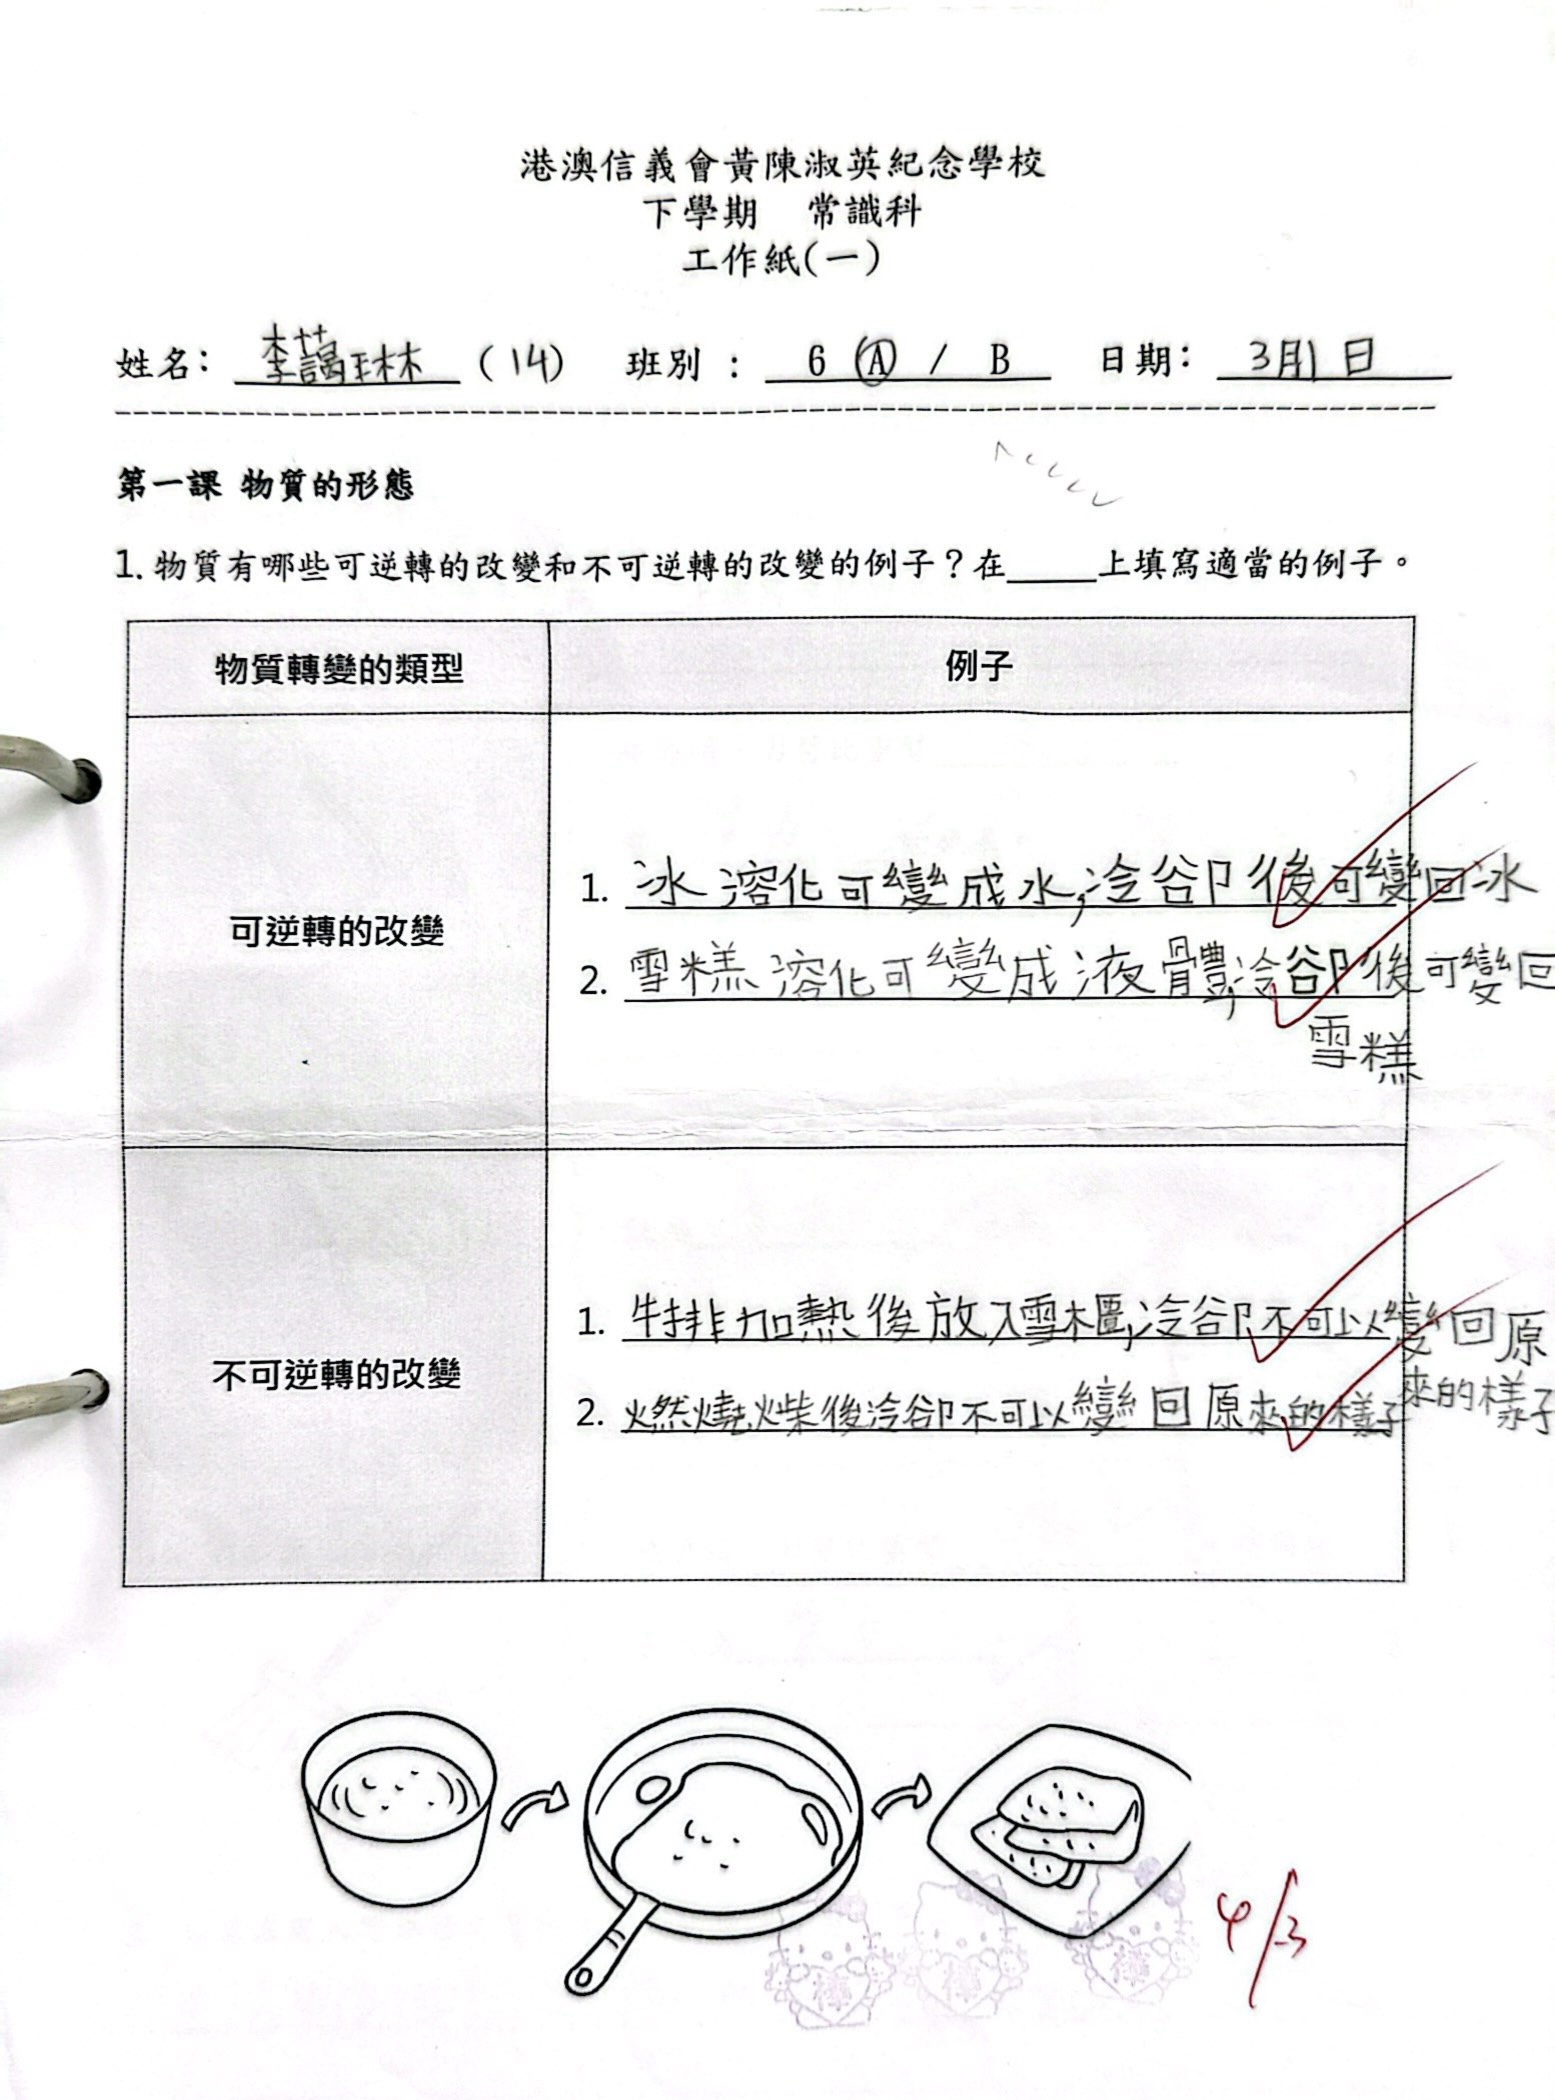 港澳信義會黃陳淑英紀念學校
下學期　常識科
工作紙(一)
姓名： 李藹琳 (14) 班別： 6 A / B 日期： 3月1日
第一課 物質的形態
1. 物質有哪些可逆轉的改變和不可逆轉的改變的例子？在_____上填寫適當的例子。
物質轉變的類型 例子
可逆轉的改變
1. 冰溶化可變成水,冷卻後可變回冰
2. 雪糕溶化可變成液體,冷卻後可變回
雪糕
不可逆轉的改變
1. 牛排加熱後放入雪櫃,冷卻不可以變回原
來的樣子
2. 燃燒柴後冷卻不可以變回原來的樣子
4/3
棒 棒 棒